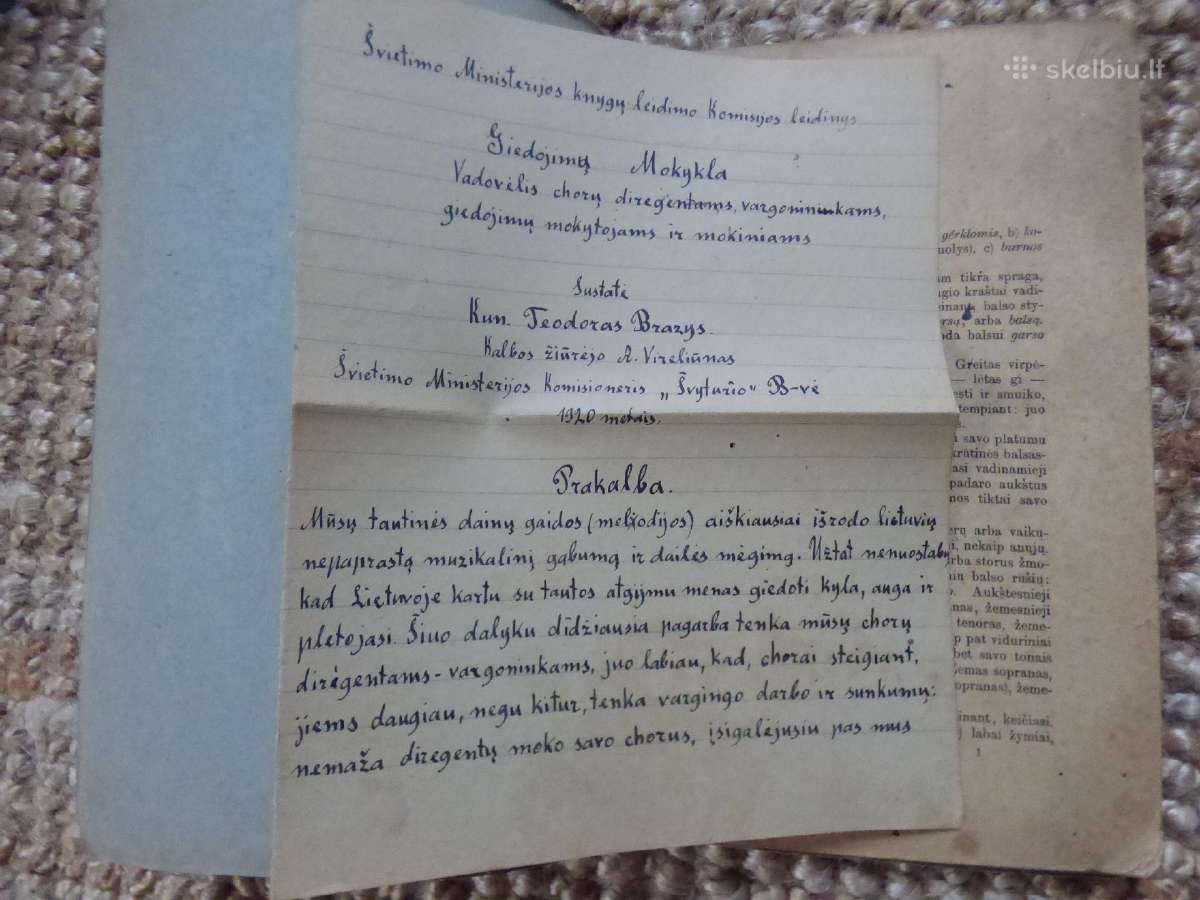 skelbiu.lt
Švietimo Ministerijos knygų leidimo Komisijos leidinys
Giedojimų Mokykla
Vadovėlis chorų dirėgentams, vargonininkams,
giedojimų mokytojams ir mokiniams
Sustatė
Kun. Teodoras Brazys.
Kalbos žiūrėjo A. Vireliūnas
Švietimo Ministerijos Komisioneris „Švyturio" B-vė
1920 metais.
Prakalba.
Mūsų tautinės dainų gaidos (melodijos) aiškiausiai išrodo lietuvių
nepaprastą muzikalinį gabumą ir dailės mėgimą. Užtat nenuostabu
kad Lietuvoje kartu su tautos atgijmu menas giedoti kyla, auga ir
pletojasi. Šiuo dalyku didžiausia pagarba tenka mūsų chorų
dirėgentams-vargoninkams, juo labiau, kad, chorai steigiant,
jiems daugiau, negu kitur, tenka vargingo darbo ir sunkumų:
nemaža diregentų moko savo chorus, įsigalėjusiu pas mus
gėrklomis, b) ko-
uolys), c) burnos
m tikra spraga,
gio kraštai vadi-
inant, balso sty-
arba balsą.
da balsui garso
Greitas virpė-
— lėtas gi —
esti ir smuiko,
tempiant: juo
s.
savo platumu
krūtinės balsas-
asi vadinamieji
padaro aukštus
nos tiktai savo
erų arba vaikų-
i, nekaip anųjų.
rba storus žmo-
balso rūšių:
Aukštesnieji
nas, žemesnieji
tenoras, žeme-
p pat viduriniai
bet savo tonais
žemas sopranas,
opranas), žeme-
inant, keičiasi,
labai žymiai,
1